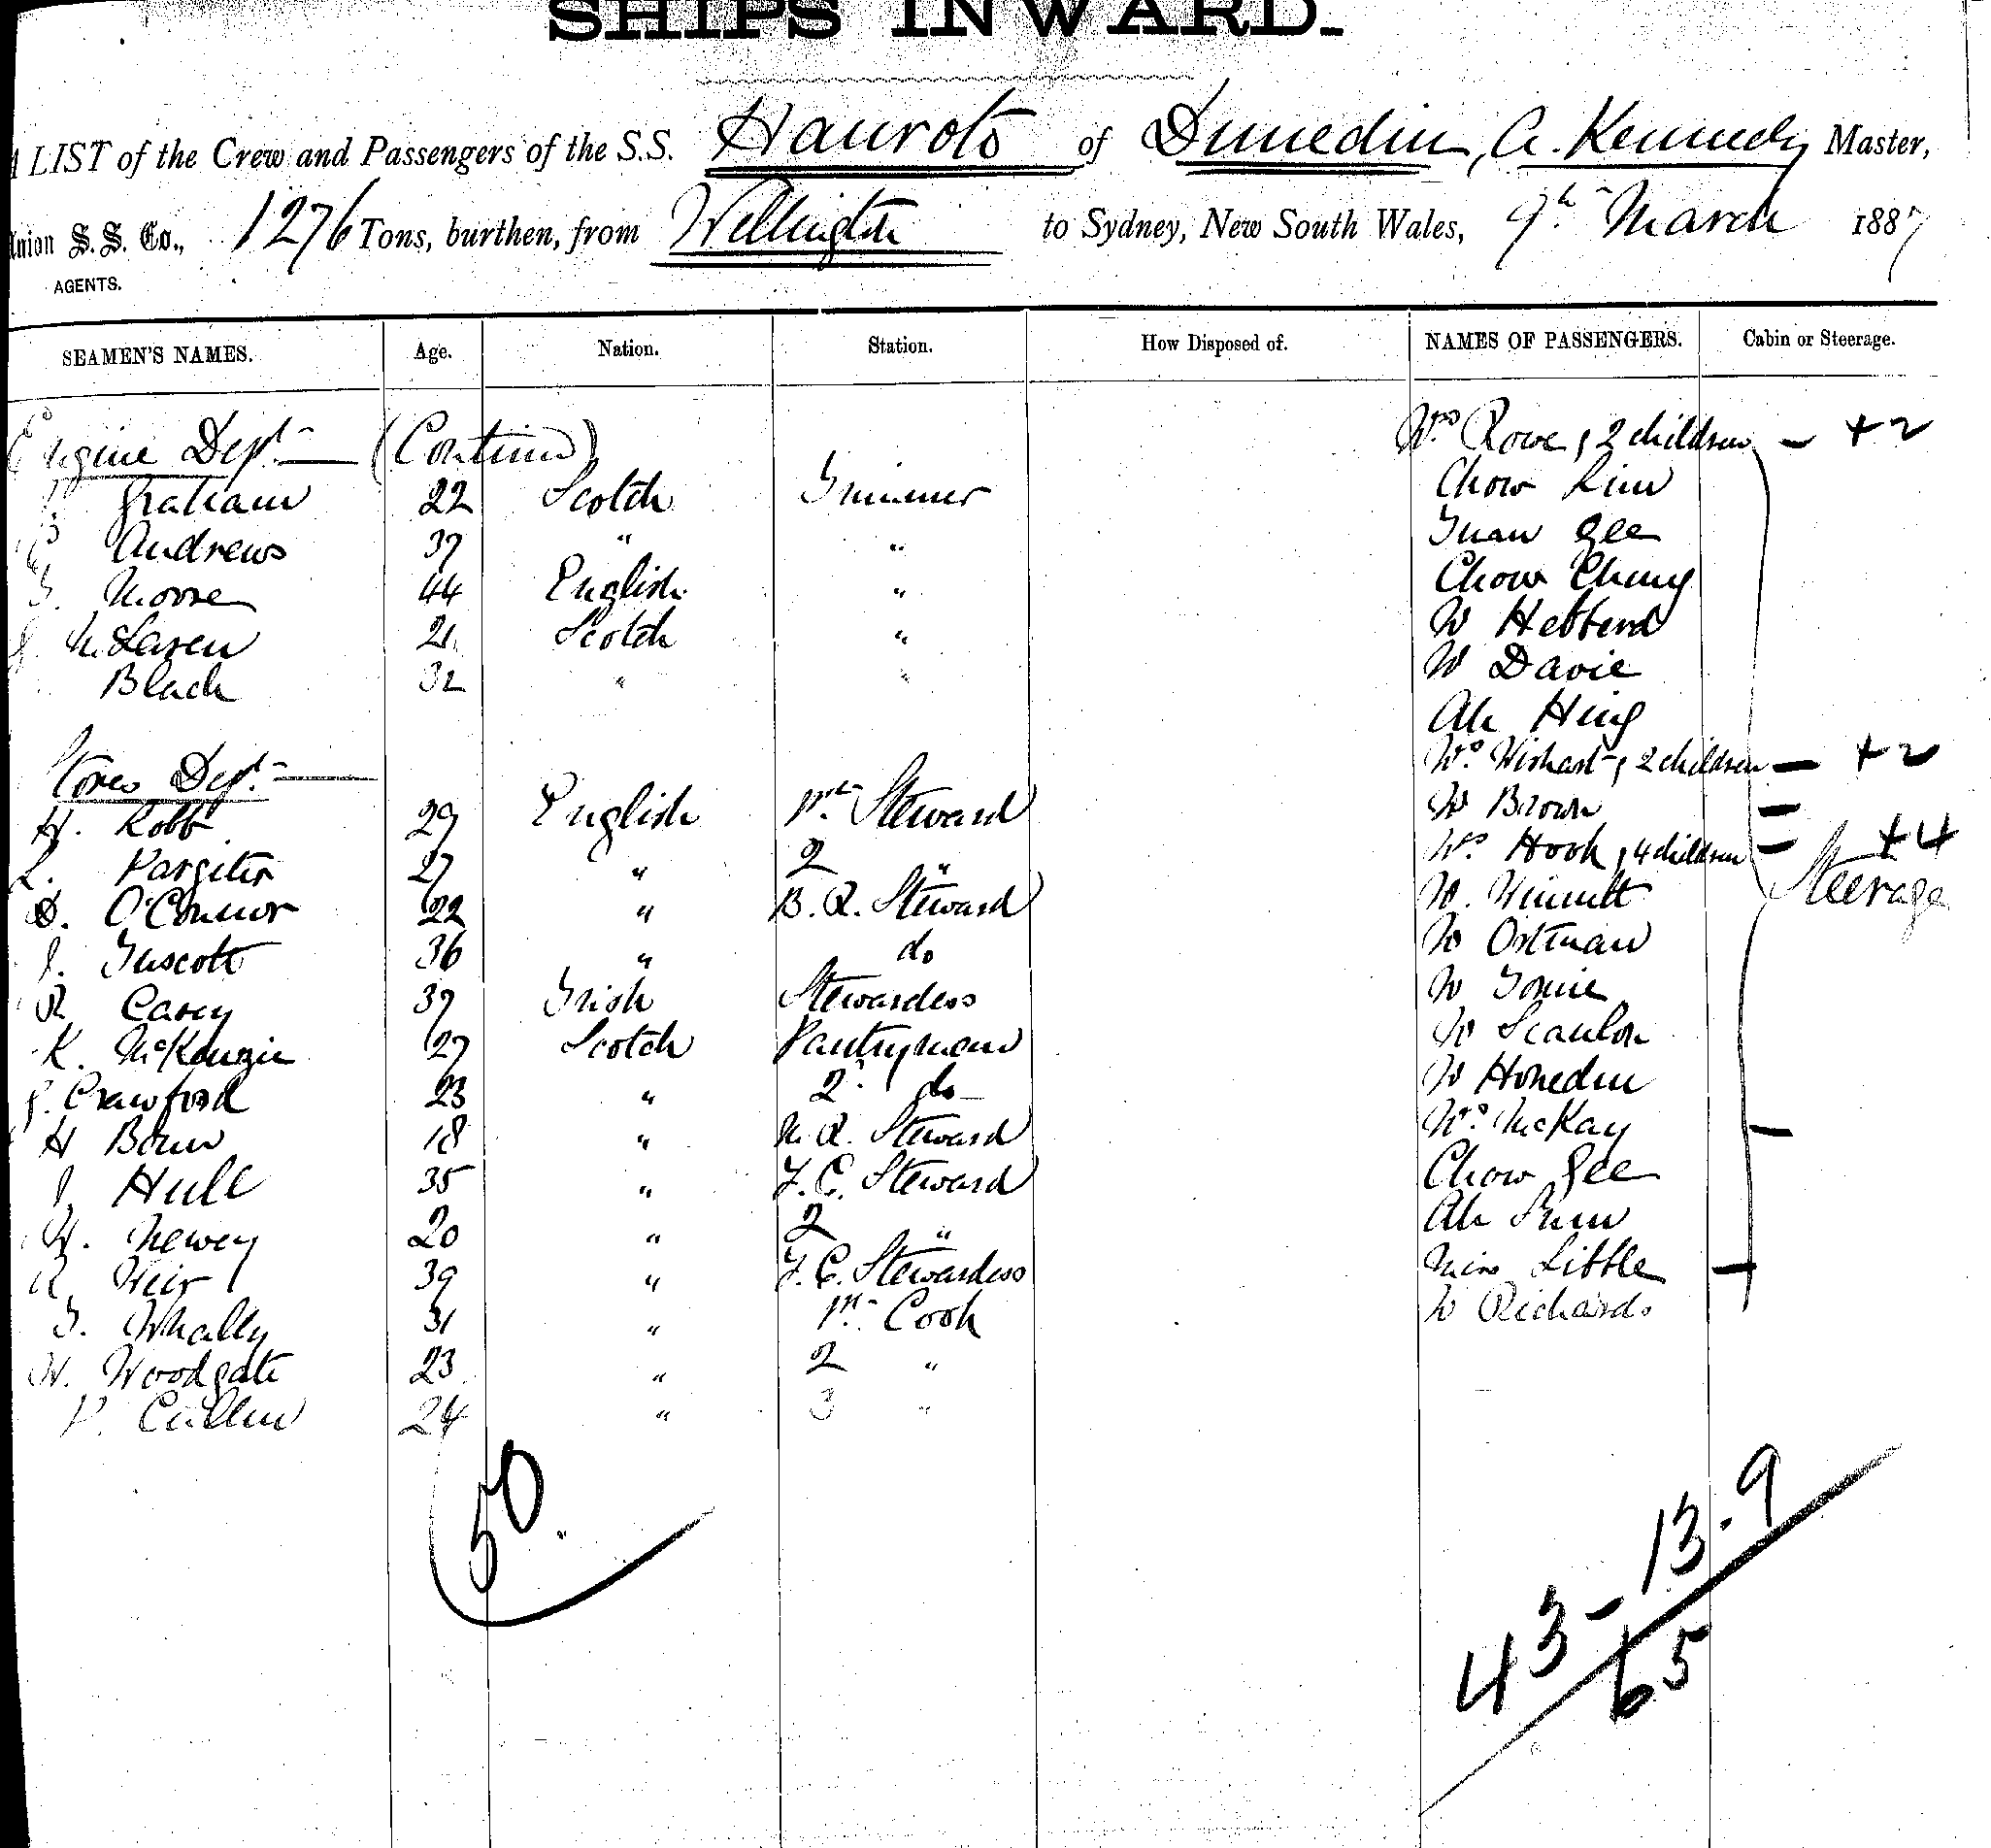 SHIPS INWARD.
A LIST of the Crew and Passengers of the S.S. Hauroto of Dunedin, A. Kennedy Master,
Union S.S. Co., 1276 Tons, burthen, from Wellington to Sydney, New South Wales, 9th March 1887
AGENTS.
SEAMEN'S NAMES. Age. Nation. Station. How Disposed of. NAMES OF PASSENGERS. Cabin or Steerage.
Engine Dept (Continued) Mrs Rowe & 2 children - +2
Graham 22 Scotch Trimmer Chow Kim
Andrews 37 " " Gee
T. Moore 44 English " Chow Chung
J. McLaren 21 Scotch " W Hebberd
Black 32 " " W Davie
Ah Hing
Stores Dept Mrs Wishart & 2 children - +2
H. Robb 29 English 1st Steward Mr Brown -
L. Pargiter 27 " 2 " Mrs Hook & 4 children - +4
D. O'Connor 22 " B. R. Steward Steerage
J. Tuscott 36 " do Mr Ortman
R Casey 37 Irish Stewardess Mr
K. McKenzie 27 Scotch Pantryman Mr Scanlon
J. Crawford 23 " 2 do Mr
H 18 " M. R. Steward Mrs McKay -
J. Hull 35 " F. C. Steward Chow Gee
W. Newey 20 " 2 " Ah
R. Weir 39 " F. C. Stewardess Miss Little -
T. Whally 31 " 1st Cook Mr Richards
W. Woodgate 23 " 2 "
P. Cullen 24 " 3 "
50
43 - 13 - 9
65